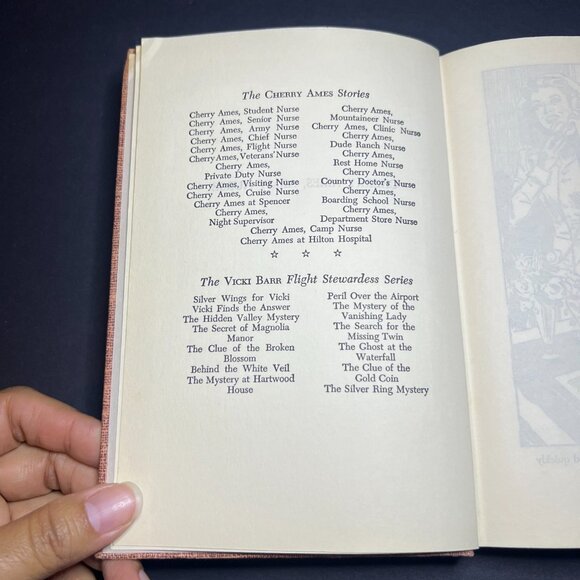 The CHERRY AMES Stories
Cherry Ames, Student Nurse
Cherry Ames, Senior Nurse
Cherry Ames, Army Nurse
Cherry Ames, Chief Nurse
Cherry Ames, Flight Nurse
Cherry Ames, Veterans' Nurse
Cherry Ames,
Private Duty Nurse
Cherry Ames, Visiting Nurse
Cherry Ames, Cruise Nurse
Cherry Ames at Spencer
Cherry Ames,
Night Supervisor
Cherry Ames,
Mountaineer Nurse
Cherry Ames, Clinic Nurse
Cherry Ames,
Dude Ranch Nurse
Cherry Ames,
Rest Home Nurse
Cherry Ames,
Country Doctor's Nurse
Cherry Ames,
Boarding School Nurse
Cherry Ames,
Department Store Nurse
Cherry Ames, Camp Nurse
Cherry Ames at Hilton Hospital
The VICKI BARR Flight Stewardess Series
Silver Wings for Vicki
Vicki Finds the Answer
The Hidden Valley Mystery
The Secret of Magnolia
Manor
The Clue of the Broken
Blossom
Behind the White Veil
The Mystery at Hartwood
House
Peril Over the Airport
The Mystery of the
Vanishing Lady
The Search for the
Missing Twin
The Ghost at the
Waterfall
The Clue of the
Gold Coin
The Silver Ring Mystery